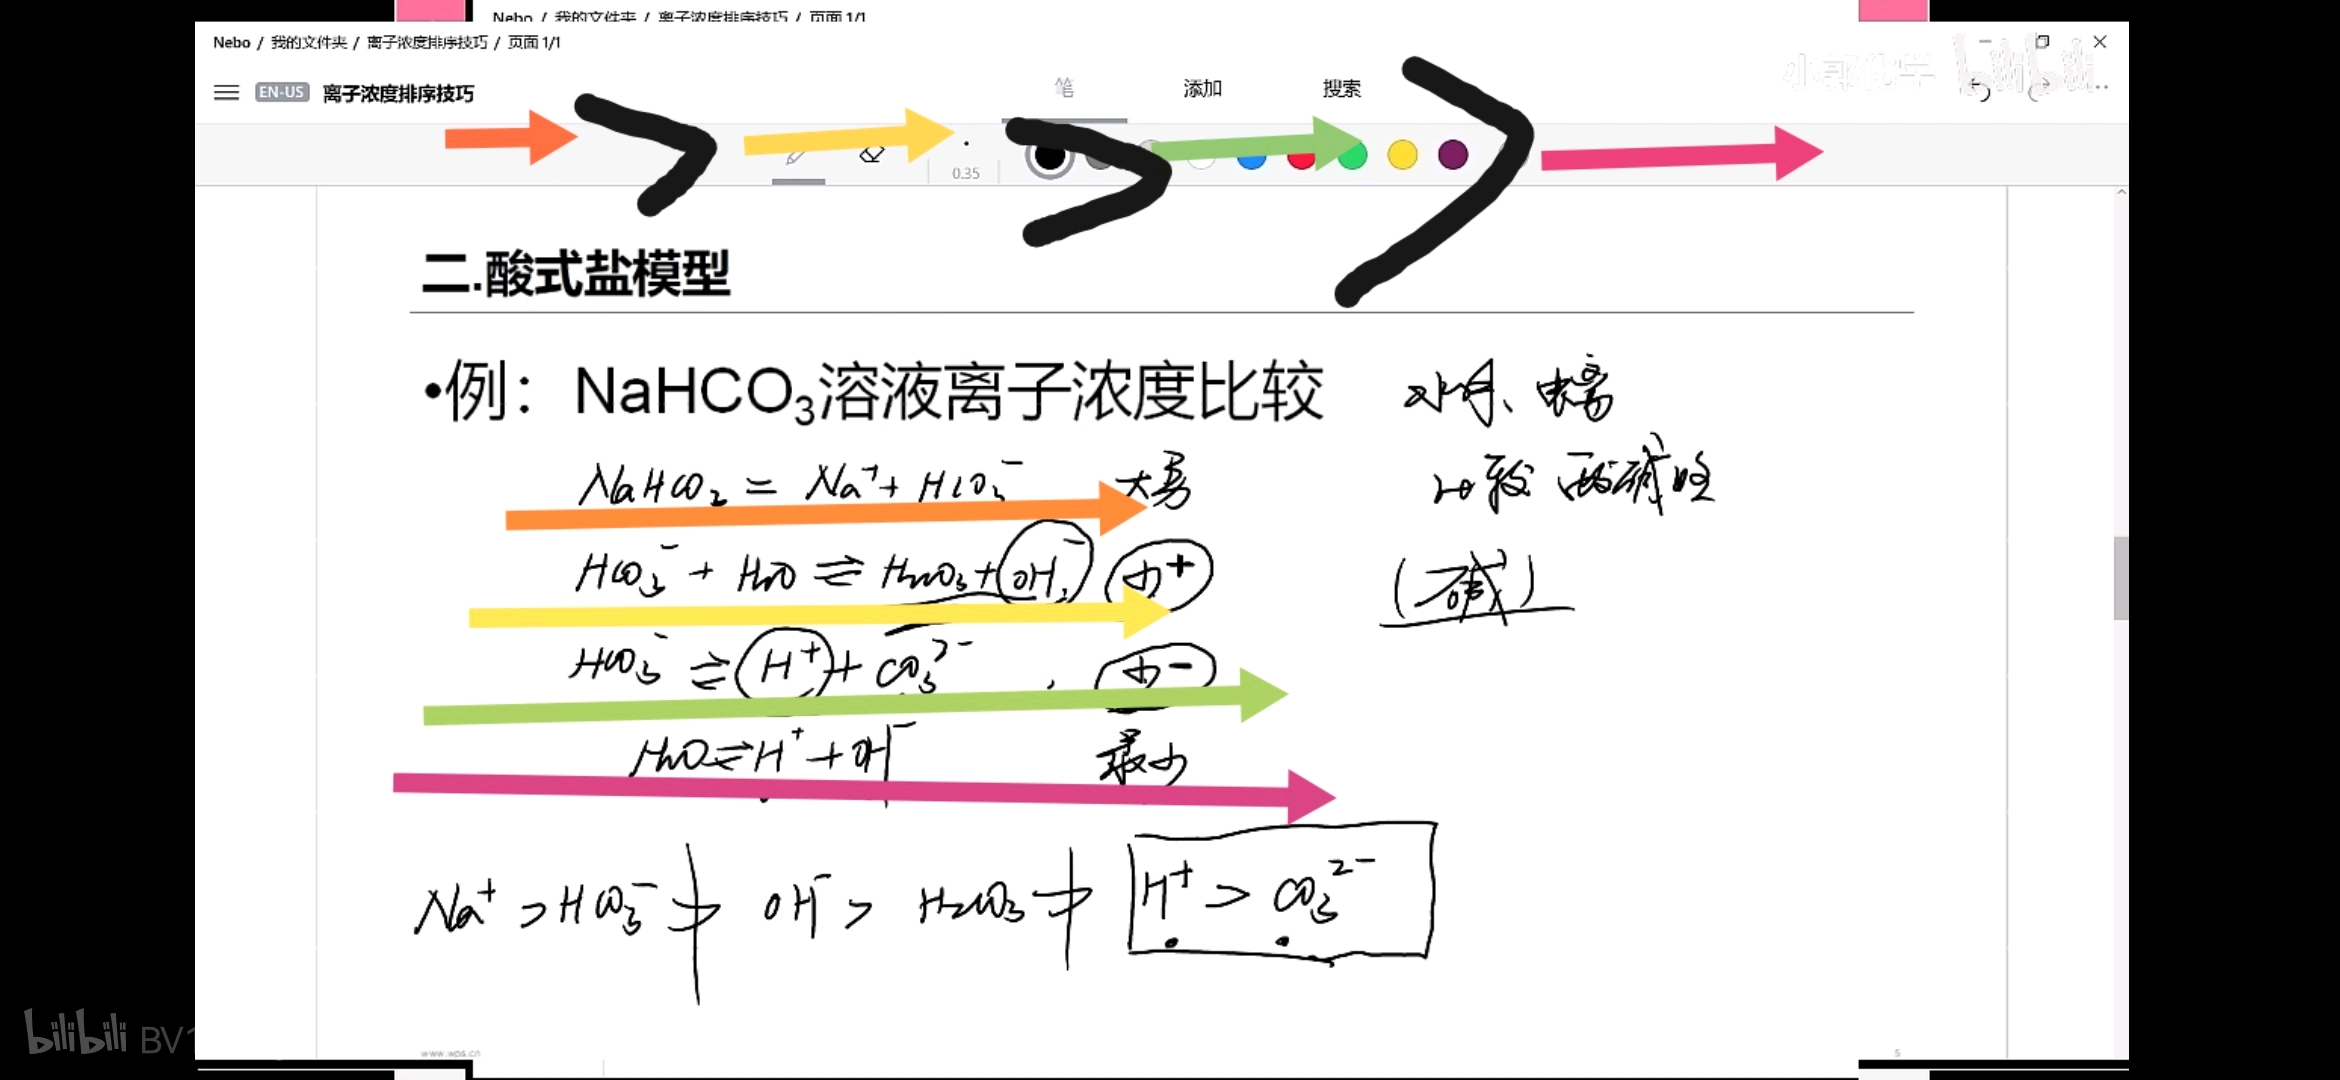 Nebo / 我的文件夹 / 离子浓度排序技巧 / 页面 1/1
Nebo / 我的文件夹 / 离子浓度排序技巧 / 页面 1/1
EN-US 离子浓度排序技巧 笔 添加 搜索
小郭化学 bilibili
0.35
二.酸式盐模型
•例：NaHCO₃溶液离子浓度比较 水解、电离
NaHCO₃ = Na⁺ + HCO₃⁻ 大哥 比较 酸碱性
HCO₃⁻ + H₂O ⇌ H₂CO₃ + OH⁻ 少+ (碱)
HCO₃⁻ ⇌ H⁺ + CO₃²⁻ 少-
H₂O ⇌ H⁺ + OH⁻ 最少
Na⁺ > HCO₃⁻ > OH⁻ > H₂CO₃ > H⁺ > CO₃²⁻
bilibili BV1
www.wps.cn 5